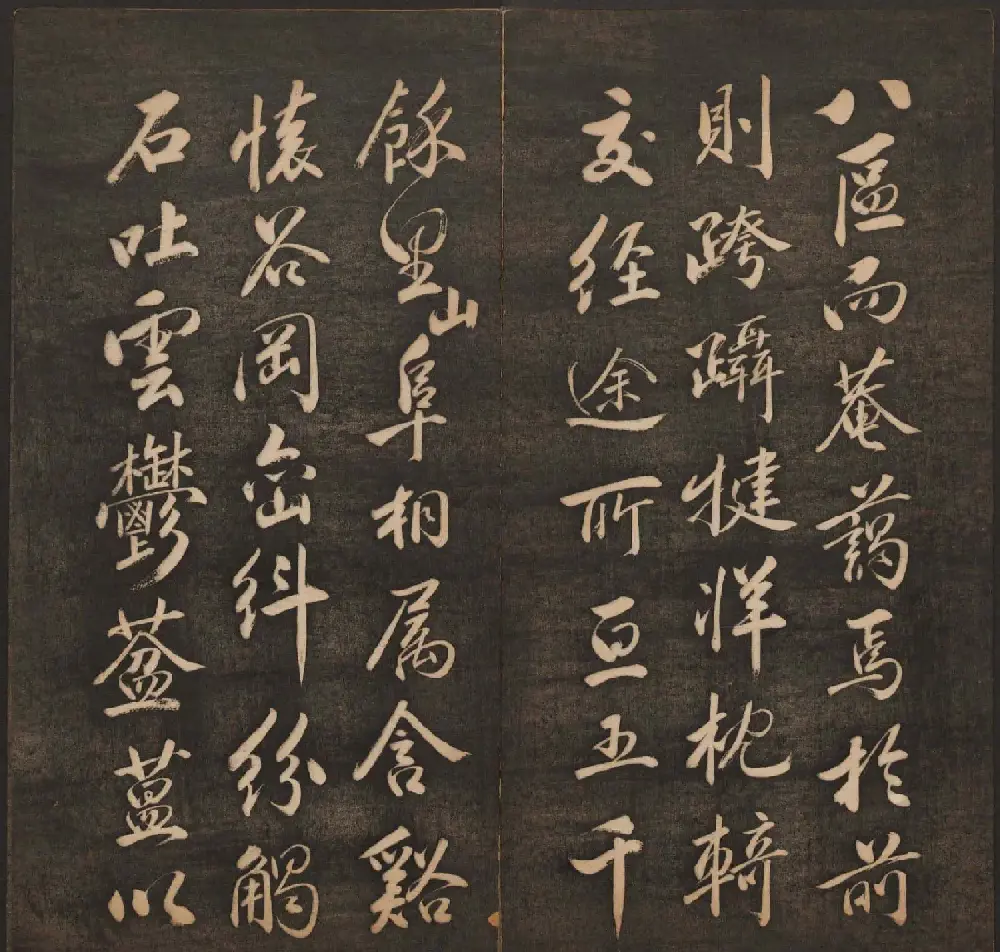 八區而菴藹焉於前
則跨躡犍牂枕輢
交經途所亘五千
餘里山阜相属含谿
懷谷岡巒糾紛觸
石吐雲鬱葐蒀以